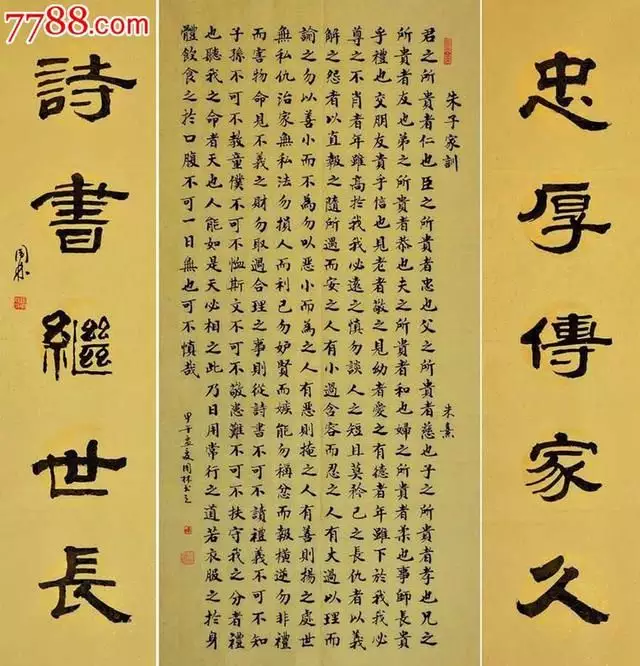 7788.com
忠厚傳家久
朱子家訓 朱熹
君之所貴者仁也臣之所貴者忠也父之所貴者慈也子之所貴者孝也兄之
所貴者友也弟之所貴者恭也夫之所貴者和也婦之所貴者柔也事師長貴
乎禮也交朋友貴乎信也見老者敬之見幼者愛之有德者年雖下於我我必
尊之不肖者年雖高於我我必遠之慎勿談人之短且莫矜己之長仇者以義
解之怨者以直報之隨所遇而安之人有小過含容而忍之人有大過以理而
諭之勿以善小而不為勿以惡小而為之人有惡則掩之人有善則揚之處世
無私仇治家無私法勿損人而利己勿妒賢而嫉能勿稱忿而報橫逆勿非禮
而害物命見不義之財勿取遇合理之事則從詩書不可不讀禮義不可不知
子孫不可不教童僕不可不恤斯文不可不敬患難不可不扶守我之分者禮
也聽我之命者天也人能如是天必相之此乃日用常行之道若衣服之於身
體飲食之於口腹不可一日無也可不慎哉
詩書繼世長